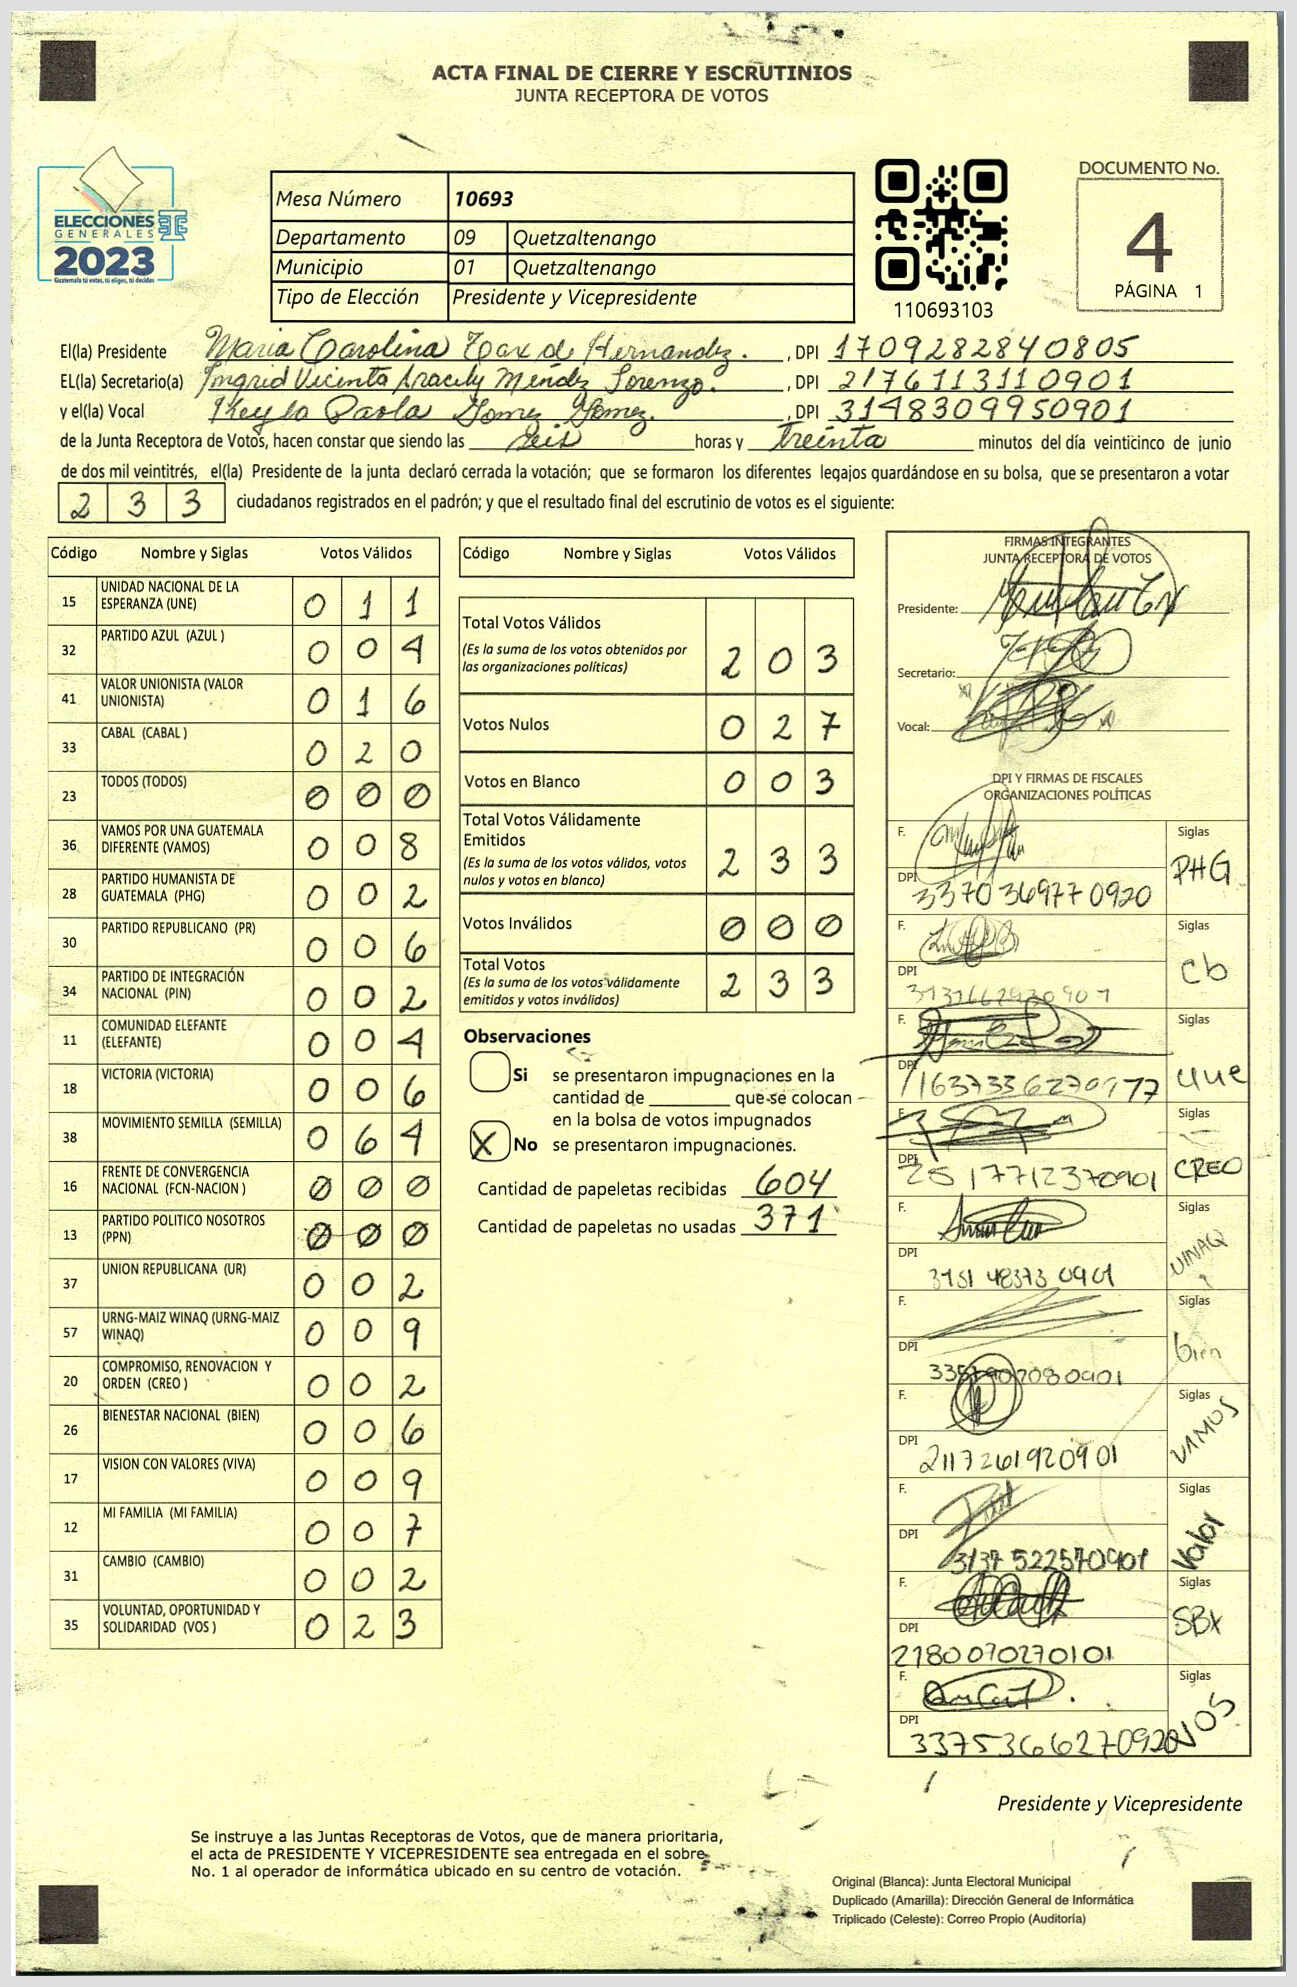 ACTA FINAL DE CIERRE Y ESCRUTINIOS
JUNTA RECEPTORA DE VOTOS
ELECCIONES
GENERALES
2023
Guatemala tú votas, tú eliges, tú decides
Mesa Número 10693
Departamento 09 Quetzaltenango
Municipio 01 Quetzaltenango
Tipo de Elección Presidente y Vicepresidente
110693103
DOCUMENTO No.
4
PÁGINA 1
El(la) Presidente Maria Carolina Tax de Hernandez. , DPI 1709282840805
EL(la) Secretario(a) Ingrid Vicenta Aracely Méndez Lorenzo. , DPI 2176113110901
y el(la) Vocal Keyla Paola Gomez Gomez. , DPI 3148309950901
de la Junta Receptora de Votos, hacen constar que siendo las seis horas y treinta minutos del día veinticinco de junio
de dos mil veintitrés, el(la) Presidente de la junta declaró cerrada la votación; que se formaron los diferentes legajos guardándose en su bolsa, que se presentaron a votar
233 ciudadanos registrados en el padrón; y que el resultado final del escrutinio de votos es el siguiente:
Código Nombre y Siglas Votos Válidos
15 UNIDAD NACIONAL DE LA ESPERANZA (UNE) 011
32 PARTIDO AZUL (AZUL ) 004
41 VALOR UNIONISTA (VALOR UNIONISTA) 016
33 CABAL (CABAL ) 020
23 TODOS (TODOS) 000
36 VAMOS POR UNA GUATEMALA DIFERENTE (VAMOS) 008
28 PARTIDO HUMANISTA DE GUATEMALA (PHG) 002
30 PARTIDO REPUBLICANO (PR) 006
34 PARTIDO DE INTEGRACIÓN NACIONAL (PIN) 002
11 COMUNIDAD ELEFANTE (ELEFANTE) 004
18 VICTORIA (VICTORIA) 006
38 MOVIMIENTO SEMILLA (SEMILLA) 064
16 FRENTE DE CONVERGENCIA NACIONAL (FCN-NACION ) 000
13 PARTIDO POLITICO NOSOTROS (PPN) 000
37 UNION REPUBLICANA (UR) 002
57 URNG-MAIZ WINAQ (URNG-MAIZ WINAQ) 009
20 COMPROMISO, RENOVACION Y ORDEN (CREO ) 002
26 BIENESTAR NACIONAL (BIEN) 006
17 VISION CON VALORES (VIVA) 009
12 MI FAMILIA (MI FAMILIA) 007
31 CAMBIO (CAMBIO) 002
35 VOLUNTAD, OPORTUNIDAD Y SOLIDARIDAD (VOS ) 023
Código Nombre y Siglas Votos Válidos
Total Votos Válidos
(Es la suma de los votos obtenidos por las organizaciones políticas) 203
Votos Nulos 027
Votos en Blanco 003
Total Votos Válidamente Emitidos
(Es la suma de los votos válidos, votos nulos y votos en blanco) 233
Votos Inválidos 000
Total Votos
(Es la suma de los votos válidamente emitidos y votos inválidos) 233
Observaciones
Si se presentaron impugnaciones en la
cantidad de ________ que se colocan
en la bolsa de votos impugnados
X No se presentaron impugnaciones.
Cantidad de papeletas recibidas 604
Cantidad de papeletas no usadas 371
FIRMAS INTEGRANTES
JUNTA RECEPTORA DE VOTOS
Presidente:
Secretario:
Vocal:
DPI Y FIRMAS DE FISCALES
ORGANIZACIONES POLÍTICAS
F. Siglas PHG
DPI 3370369770920
F. Siglas Cb
DPI
F. Siglas une
DPI
F. Siglas CREO
DPI 2517712370901
F. Siglas WINAQ
DPI 3151483730901
F. Siglas bien
DPI
F. Siglas VAMOS
DPI 2117261920901
F. Siglas Valor
DPI 3137522570901
F. Siglas
DPI 2180070270101
F. Siglas VOS
DPI 3375366270920
Presidente y Vicepresidente
Se instruye a las Juntas Receptoras de Votos, que de manera prioritaria,
el acta de PRESIDENTE Y VICEPRESIDENTE sea entregada en el sobre
No. 1 al operador de informática ubicado en su centro de votación.
Original (Blanca): Junta Electoral Municipal
Duplicado (Amarilla): Dirección General de Informática
Triplicado (Celeste): Correo Propio (Auditoría)